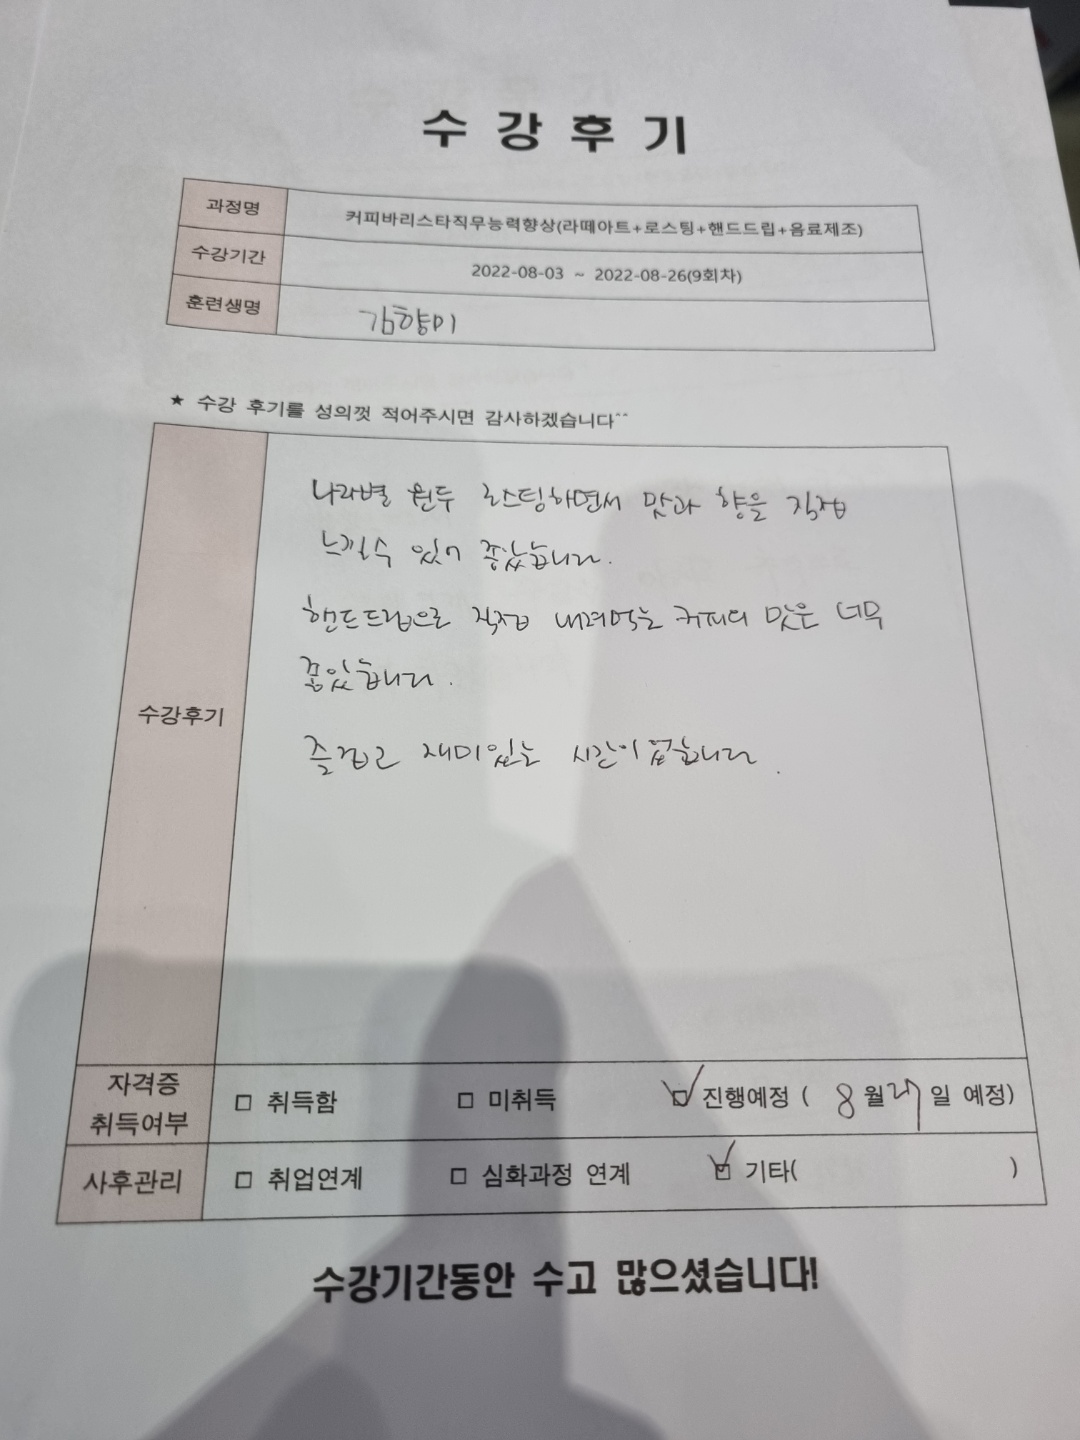 수강후기
과정명 커피바리스타직무능력향상(라떼아트+로스팅+핸드드립+음료제조)
수강기간 2022-08-03 ~ 2022-08-26(9회차)
훈련생명 김향미
★ 수강 후기를 성의껏 적어주시면 감사하겠습니다^^
나라별 원두 로스팅하면서 맛과 향을 직접
느낄수 있어 좋았습니다.
핸드드립으로 직접 내려먹는 커피의 맛은 너무
좋았습니다.
수강후기
즐겁고 재미있는 시간이었습니다.
자격증
취득여부
□ 취득함 □ 미취득 □ 진행예정 ( 8월 일 예정)
사후관리 □ 취업연계 □ 심화과정 연계 □ 기타( )
수강기간동안 수고 많으셨습니다!